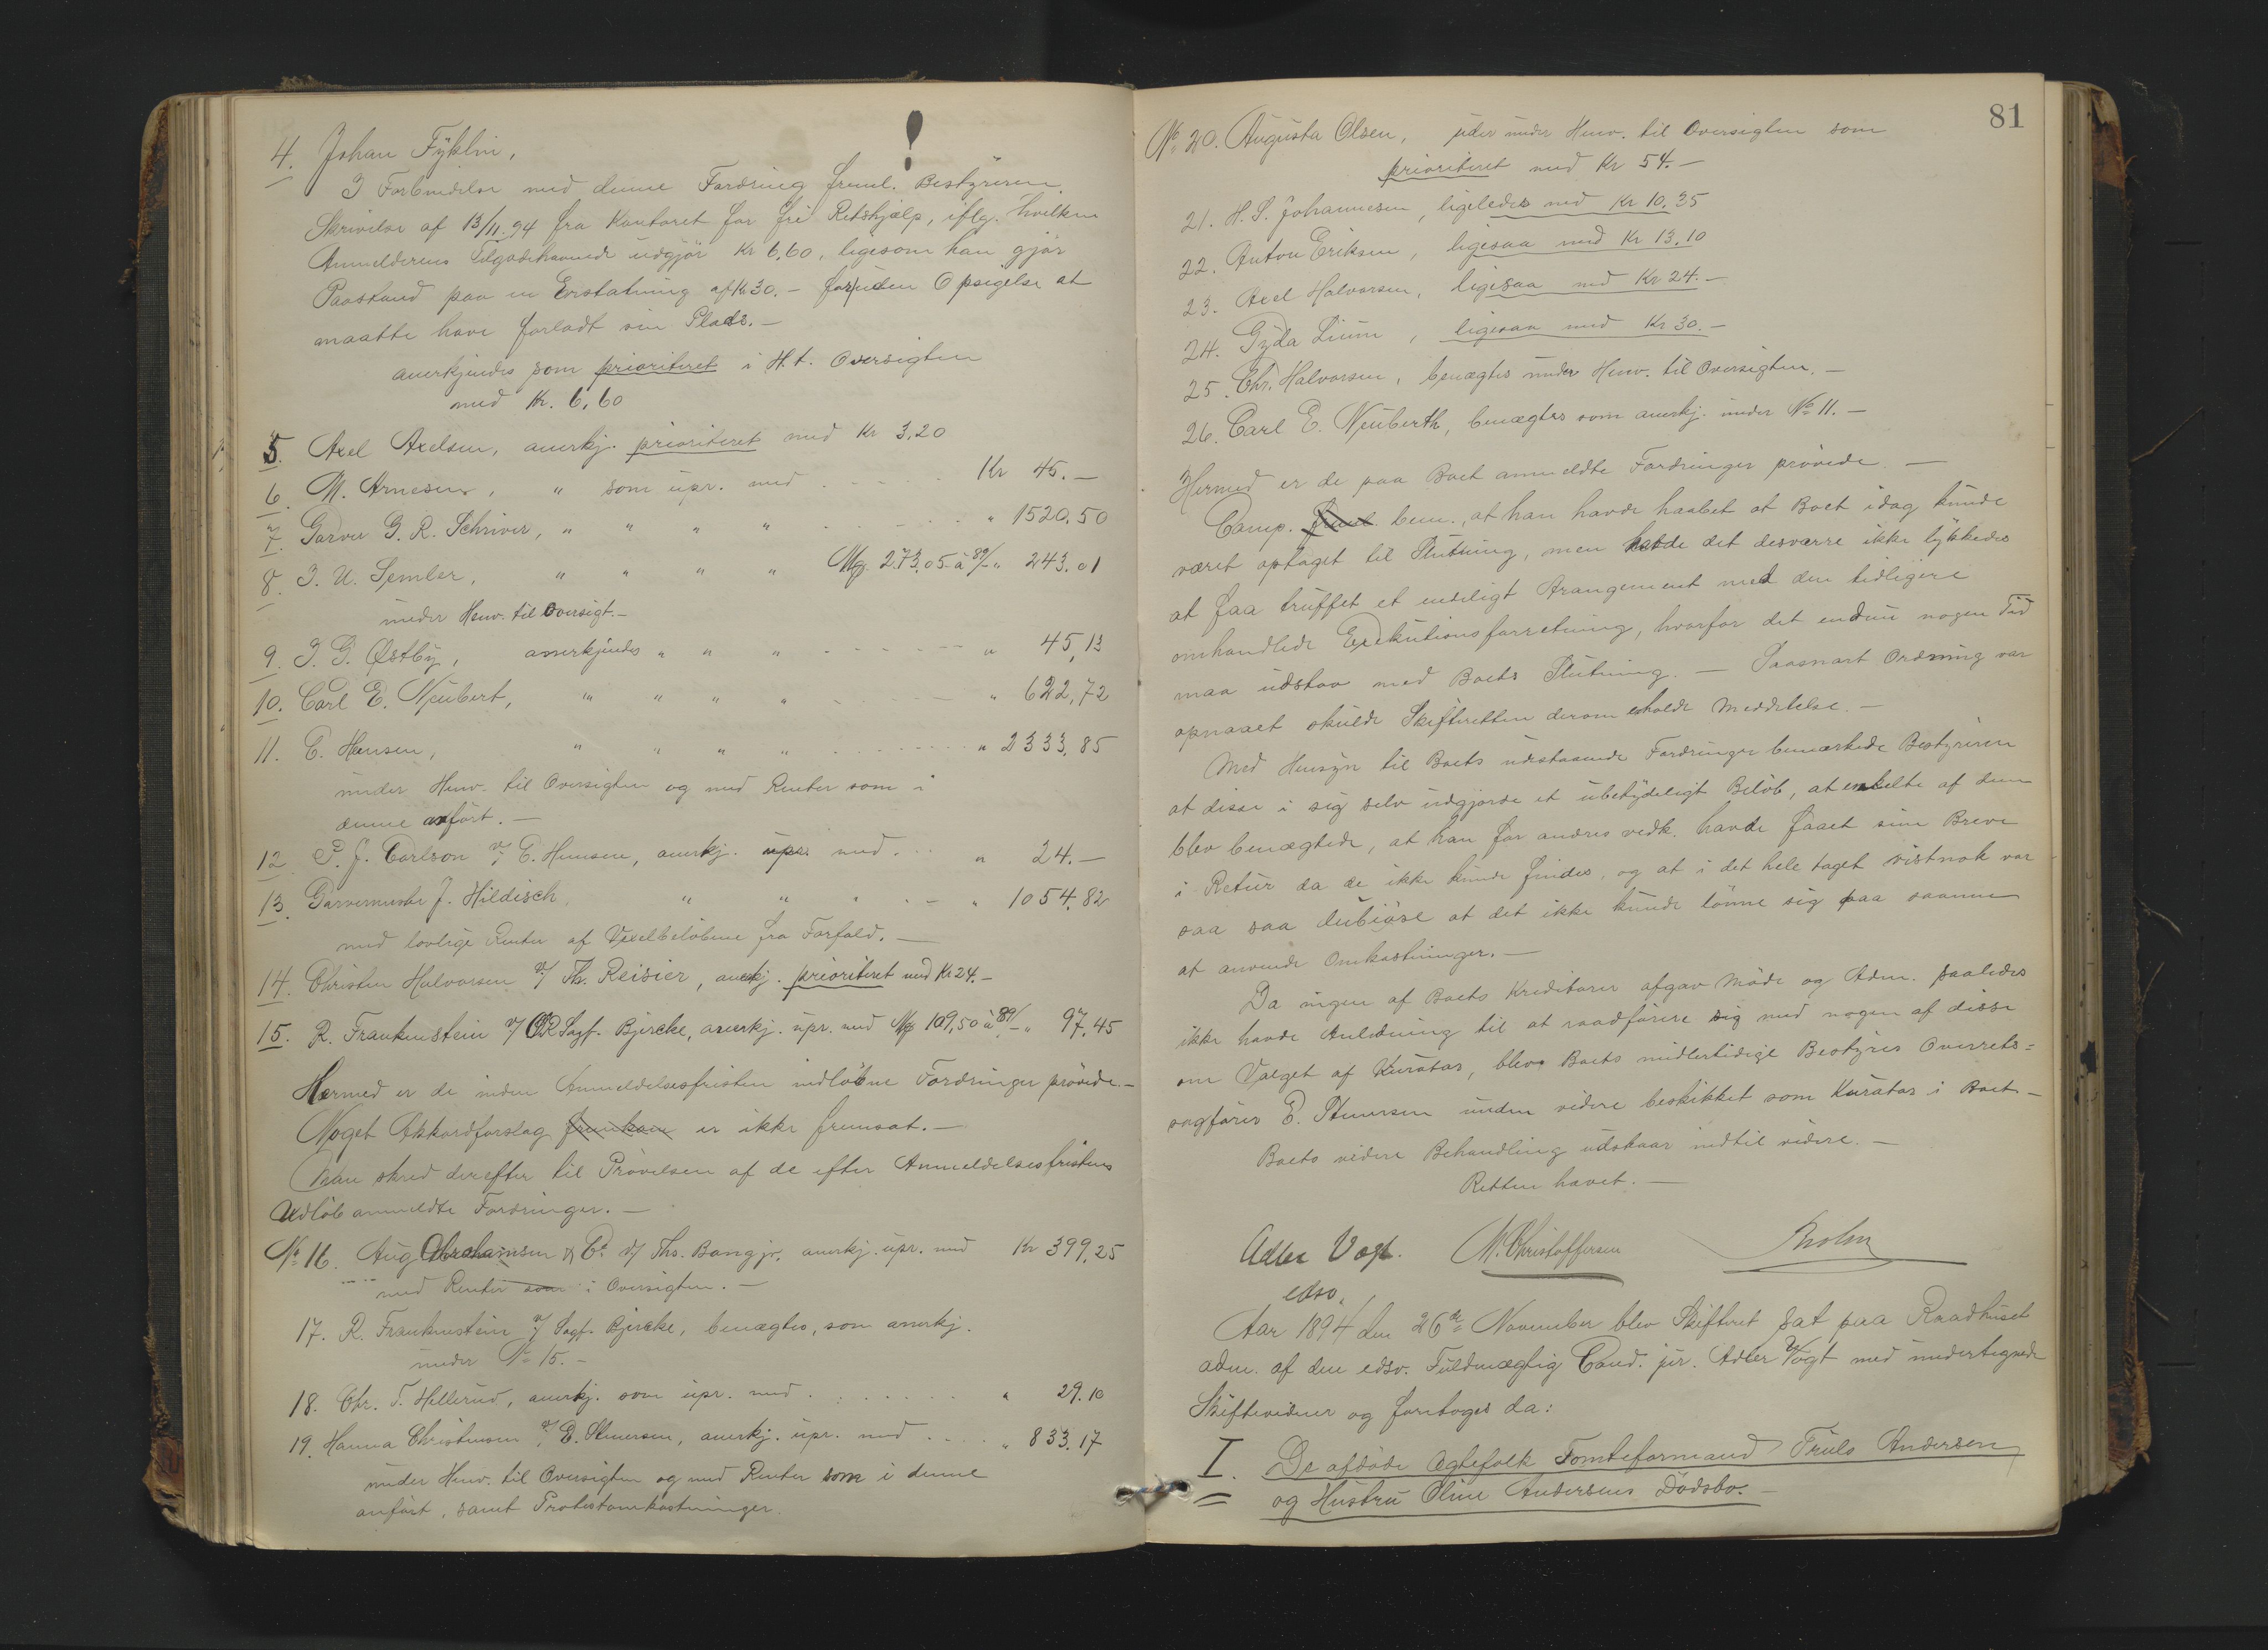 4. Johan Fyklin,
I Forbindelse med denne Fordring freml. Bestyreren
Skrivelse af 13/11.94 fra Kontoret for fri Retshjælp, iflg. hvilken
Anmelderens Tilgodehavende udgjør Kr 6,60, ligesom han gjør
Paastand paa en Erstatning af Kr 30.- for uden Opsigelse at
maatte have forladt sin Plads.-
anerkjendes som prioriteret i H.t. Oversigten
med Kr. 6,60
5. Axel Axelsen, anerkj. prioriteret med Kr 3,20
6. M. Arnesen, " som upr. med . . . . . Kr 45.-
7. Garver G. R. Schriver, " " " " . . . . . " 1520,50
8. I. U. Semler, " " " " Mg. 273,05 à 89/- " 243.01
under Henv. til Oversigt.-
9. I. G. Østby, anerkjendes " " " - - - - - - " 45,13
10. Carl E. Neubert, " " " " . - - - - - " 622,72
11. E. Hansen, " " " " . - - - - - " 2333,85
under Henv. til Oversigten og med Renter som i
denne anført.-
12. P. J. Carlson v/ E. Hansen, anerkj. upr. med . . . " 24.-
13. Garvermester J. Hildisch, " " " . - " 1054,82
med lovlige Renter af Vexelbeløbene fra Forfald.-
14. Christen Halvorsen v/ Th. Reisier, anerkj. prioriteret med Kr 24.-
15. R. Frankenstein v/ O.R.Sagf. Bjercke, anerkj. upr. med Mg 109,50 à 89/- " 97,45
Hermed er de inden Anmeldelsesfristen indløbne Fordringer prøvede.-
Noget Akkordforslag fremkom er ikke fremsat.-
Man skred derefter til Prøvelsen af de efter Anmeldelsesfristens
Udløb anmeldte Fordringer.-
No 16. Aug Abrahamsen & Co v/ Ths. Bang jr. anerkj. upr. med Kr 399,25
med Renter som i Oversigten.-
17. R. Frankenstein v/ Sagf. Bjercke, benægtes, som anerkj.
under No 15.-
18. Chr. T. Hellerud, anerkj. som upr. med . . . . . . . " 29.10
19. Hanna Christensen v/ E. Stenersen, anerkj. upr. med . . . . " 833.17
under Henv. til Oversigten og med Renter som i denne
anført, samt Protestomkostninger.
81
No 20. Augusta Olsen, under Henv. til Oversigten som
prioriteret med Kr 54.-
21. H. S. Johannesen, ligeledes med Kr 10.35
22. Anton Eriksen, ligesaa med Kr 13.10
23. Axel Halvorsen, ligesaa med Kr 24.-
24. Gyda Lium, ligesaa med Kr 30.-
25. Chr. Halvorsen, benægtes under Henv. til Oversigten.-
26. Carl E. Neuberth, benægtes som anerkj. under No 11.-
Hermed er de paa Boet anmeldte Fordringer prøvede.-
Comp. freml. bem., at han havde haabet at Boet idag kunde
været optaget til Slutning, men havde det desværre ikke lykkedes
at faa truffet et endeligt Arangement med den tidligere
omhandlede Exekutionsforretning, hvorfor det endnu nogen Tid
maa udstaa med Boets Slutning.- Saasnart Ordning var
opnaaet skulde Skifteretten derom erholde Meddelelse.-
Med Hensyn til Boets udestaaende Fordringer bemærkede Bestyreren
at disse i sig selv udgjorde et ubetydeligt Beløb, at enkelte af dem
blev benægtede, at han for andres vedk. havde faaet sine Breve
i Retur da de ikke kunde findes, og at i det hele taget vistnok var
saa saa dubiøse at det ikke kunde lønne sig paa samme
at anvende Omkostninger.-
Da ingen af Boets Kreditorer afgav Møde og Adm. saaledes
ikke havde Anledning til at raadføre sig med nogen af disse
om Valget af Kurator, blev Boets midlertidige Bestyrer Overrets=
sagfører E. Stenersen inden videre beskikket som Kurator i Boet.-
Boets videre Behandling udstaar indtil videre.-
Retten hævet.-
Adler Vogt. M. Christoffersen Bholm
edsv.
Aar 1894 den 26de November blev Skifteret sat paa Raadhuset
adm. af den edsv. Fuldmægtig Cand. jur. Adler Vogt med undertegnede
Skiftevidner og foretoges da:
I. De afdøde Ægtefolk Tomteformand Truls Andersen
og Hustru Oline Andersens Dødsbo.-